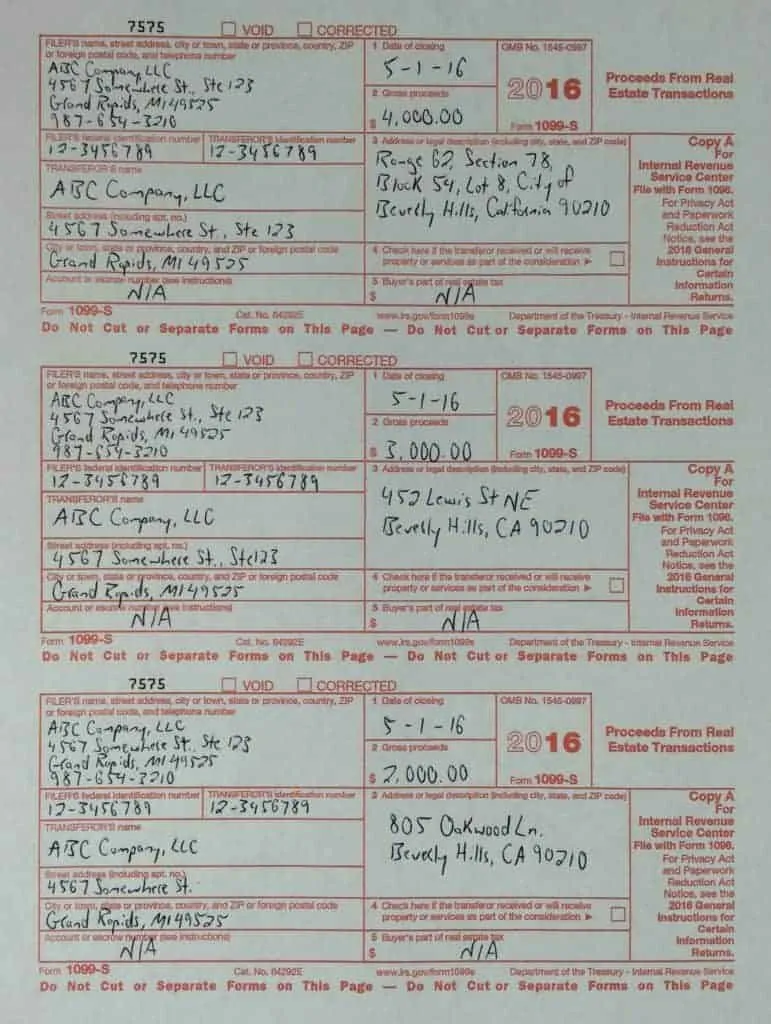 7575 VOID CORRECTED
FILER'S name, street address, city or town, state or province, country, ZIP
or foreign postal code, and telephone number
ABC Company, LLC
4567 Somewhere St., Ste 123
Grand Rapids, MI 49525
987-654-3210
1 Date of closing
5-1-16
2 Gross proceeds
$ 4,000.00
OMB No. 1545-0997
2016
Form 1099-S
Proceeds From Real
Estate Transactions
FILER'S federal identification number
12-3456789
TRANSFEROR'S identification number
12-3456789
TRANSFEROR'S name
ABC Company, LLC
Street address (including apt. no.)
4567 Somewhere St., Ste 123
City or town, state or province, country, and ZIP or foreign postal code
Grand Rapids, MI 49525
Account or escrow number (see instructions)
N/A
3 Address or legal description (including city, state, and ZIP code)
Range 62, Section 78,
Block 54, Lot 8, City of
Beverly Hills, California 90210
4 Check here if the transferor received or will receive
property or services as part of the consideration ►
5 Buyer's part of real estate tax
$ N/A
Copy A
For
Internal Revenue
Service Center
File with Form 1096.
For Privacy Act
and Paperwork
Reduction Act
Notice, see the
2016 General
Instructions for
Certain
Information
Returns.
Form 1099-S Cat. No. 64292E www.irs.gov/form1099s Department of the Treasury - Internal Revenue Service
Do Not Cut or Separate Forms on This Page — Do Not Cut or Separate Forms on This Page
7575 VOID CORRECTED
FILER'S name, street address, city or town, state or province, country, ZIP
or foreign postal code, and telephone number
ABC Company, LLC
4567 Somewhere St., Ste 123
Grand Rapids, MI 49525
987-654-3210
1 Date of closing
5-1-16
2 Gross proceeds
$ 3,000.00
OMB No. 1545-0997
2016
Form 1099-S
Proceeds From Real
Estate Transactions
FILER'S federal identification number
12-3456789
TRANSFEROR'S identification number
12-3456789
TRANSFEROR'S name
ABC Company, LLC
Street address (including apt. no.)
4567 Somewhere St., Ste123
City or town, state or province, country, and ZIP or foreign postal code
Grand Rapids, MI 49525
Account or escrow number (see instructions)
N/A
3 Address or legal description (including city, state, and ZIP code)
452 Lewis St NE
Beverly Hills, CA 90210
4 Check here if the transferor received or will receive
property or services as part of the consideration ►
5 Buyer's part of real estate tax
$ N/A
Copy A
For
Internal Revenue
Service Center
File with Form 1096.
For Privacy Act
and Paperwork
Reduction Act
Notice, see the
2016 General
Instructions for
Certain
Information
Returns.
Form 1099-S Cat. No. 64292E www.irs.gov/form1099s Department of the Treasury - Internal Revenue Service
Do Not Cut or Separate Forms on This Page — Do Not Cut or Separate Forms on This Page
7575 VOID CORRECTED
FILER'S name, street address, city or town, state or province, country, ZIP
or foreign postal code, and telephone number
ABC Company, LLC
4567 Somewhere St. Ste 123
Grand Rapids, MI 49525
987-654-3210
1 Date of closing
5-1-16
2 Gross proceeds
$ 2,000.00
OMB No. 1545-0997
2016
Form 1099-S
Proceeds From Real
Estate Transactions
FILER'S federal identification number
12-3456789
TRANSFEROR'S identification number
12-3456789
TRANSFEROR'S name
ABC Company, LLC
Street address (including apt. no.)
4567 Somewhere St.
City or town, state or province, country, and ZIP or foreign postal code
Grand Rapids, MI 49525
Account or escrow number (see instructions)
N/A
3 Address or legal description (including city, state, and ZIP code)
805 Oakwood Ln.
Beverly Hills, CA 90210
4 Check here if the transferor received or will receive
property or services as part of the consideration ►
5 Buyer's part of real estate tax
$ N/A
Copy A
For
Internal Revenue
Service Center
File with Form 1096.
For Privacy Act
and Paperwork
Reduction Act
Notice, see the
2016 General
Instructions for
Certain
Information
Returns.
Form 1099-S Cat. No. 64292E www.irs.gov/form1099s Department of the Treasury - Internal Revenue Service
Do Not Cut or Separate Forms on This Page — Do Not Cut or Separate Forms on This Page